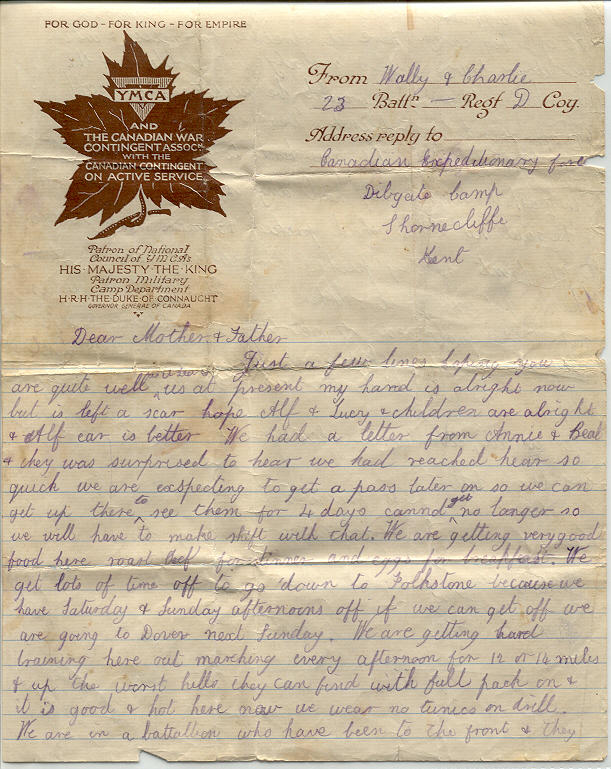 FOR GOD - FOR KING - FOR EMPIRE
YMCA
AND
THE CANADIAN WAR
CONTINGENT ASSOC.
WITH THE
CANADIAN CONTINGENT
ON ACTIVE SERVICE
Patron of National
Council of YMCAs
HIS·MAJESTY·THE·KING
Patron Military
Camp Department
H·R·H·THE·DUKE·OF·CONNAUGHT
GOVERNOR GENERAL OF CANADA
From Wally & Charlie
23 Battn — Regt D Coy.
Address reply to
Canadian Expeditionary force
Dibgate Camp
Shornecliffe
Kent
Dear Mother & Father
Just a few lines hoping you
are quite well as it leaves us at present my hand is alright now
but is left a scar hope Alf & Lucy & children are alright
& Alf ear is better We had a letter from Annie & Beal
& they was surprised to hear we had reached hear so
quick we are exspecting to get a pass later on so we can
get up there to see them for 4 days cannot get no longer so
we will have to make shift with that. We are getting very good
food here roast beef for dinner and eggs for breakfast. We
get lots of time off to go down to Folkstone because we
have Saturday & Sunday afternoons off if we can get off we
are going to Dover next Sunday. We are getting hard
training here out marching every afternoon for 12 or 14 miles
& up the worst hills they can find with full pack on &
it is good & hot here now we wear no tunics on drill.
We are in a battallion who have been to the front & they